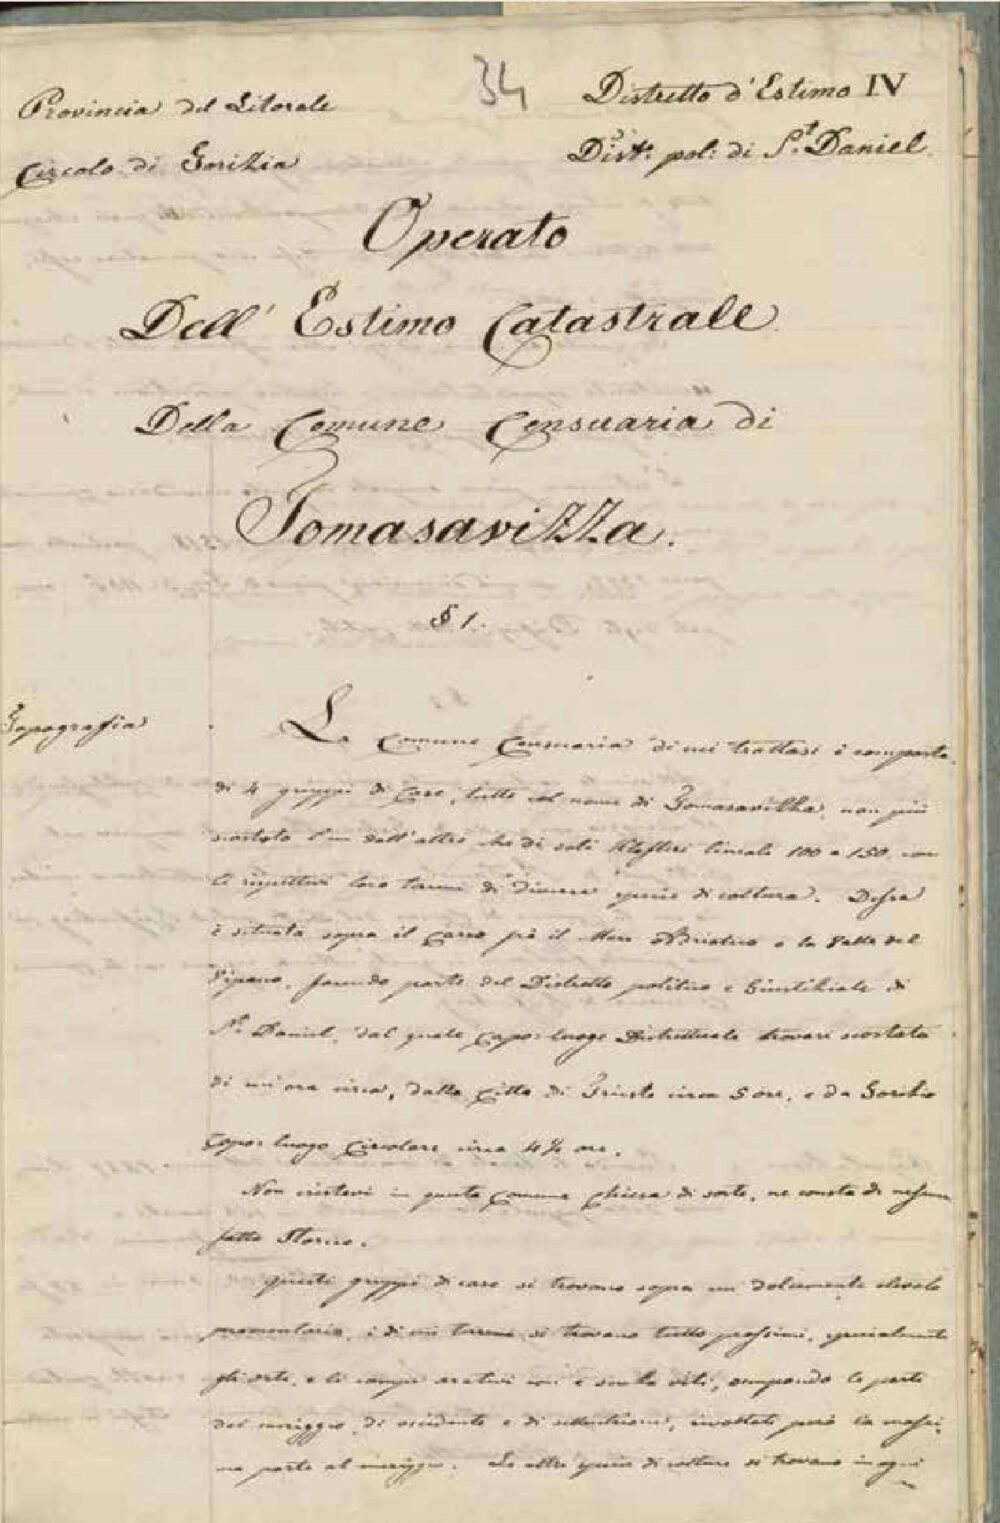 34
Provincia del Litorale
Distretto d'Estimo IV
Circolo di Gorizia
Disto. pol: di St. Daniel
Operato
Dell' Estimo Catastrale
Della Comune Censuaria di
Tomasavizza.
§ 1.
Topografia
La Comune Censuaria di cui trattasi è composta
di 4 gruppi di Case, tutte col nome di Tomasavizza, non più
scostato l'un dall'altro che di soli Klafteri lineale 100 a 150, con
li rispettivi loro terreni di diverse specie di coltura. Dessa
è situata sopra il Carso frà il Mare Adriatico e la Valle del
Vipaco, facendo parte del Distretto politico e Giudiziale di
St. Daniel, dal quale Capo-luogo Distrettuale trovasi scostata
di un'ora circa, dalla Città di Trieste circa 5 ore, e da Gorizia
Capo-luogo Circolare circa 4½ ore.
Non esistevi in questa Comune Chiesa di sorte, ne consta di nessun
fatto Storico.
Questi gruppi di case si trovano sopra un dolcemente elevato
promontorio, i di cui terreni si trovano tutto prossimi, specialmente
gli orti, e li campi arativi con e senza viti, occupando la parte
del meriggio, di occidente e di settentrione, inoltrati però la massi-
ma parte al meriggio. Le altre specie di colture si trovano in ogni